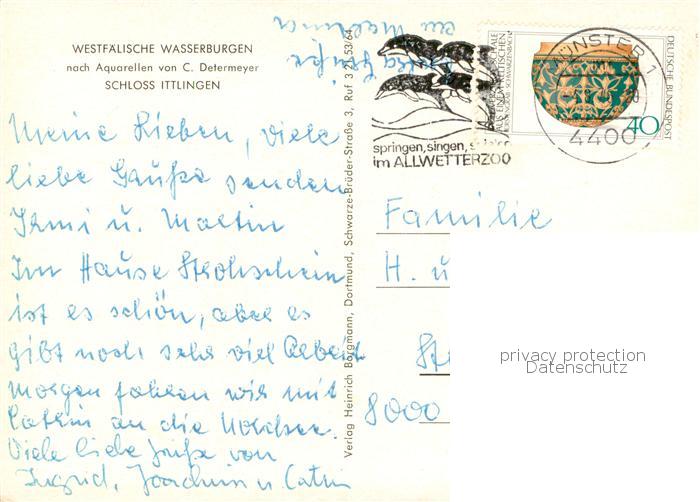 WESTFÄLISCHE WASSERBURGEN
nach Aquarellen von C. Determeyer
SCHLOSS ITTLINGEN
Meine Lieben, viele
liebe Grüße senden
Irmi u. Martin
Im Hause Strohschein
ist es schön, aber es
gibt noch sehr viel Arbeit
Morgen fahren wir mit
Catrin an die Nordsee.
Viele liebe Grüße von
Ingrid, Joachim u Catrin
Grüße
an
Verlag Heinrich Borgmann, Dortmund, Schwarze-Brüder-Straße 3, Ruf 3 21 53/64
springen, singen,
im ALLWETTERZOO
MÜNSTER 1
4400
DEUTSCHE BUNDESPOST
40
Familie
H. u
St
8000
privacy protection
Datenschutz